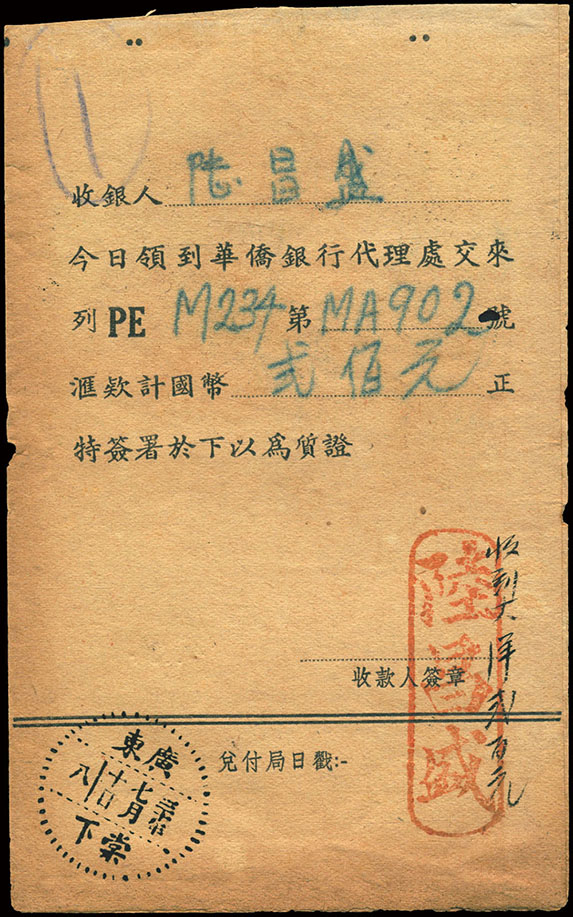 收銀人 陸昌盛
今日領到華僑銀行代理處交來
列 PE M234 第 MA902 號
滙欵計國幣 弍佰元 正
特簽署於下以爲質證
收到大洋弍百元
陸昌盛
收款人簽章
兌付局日戳:-
廣東
七月
十八日
棠下